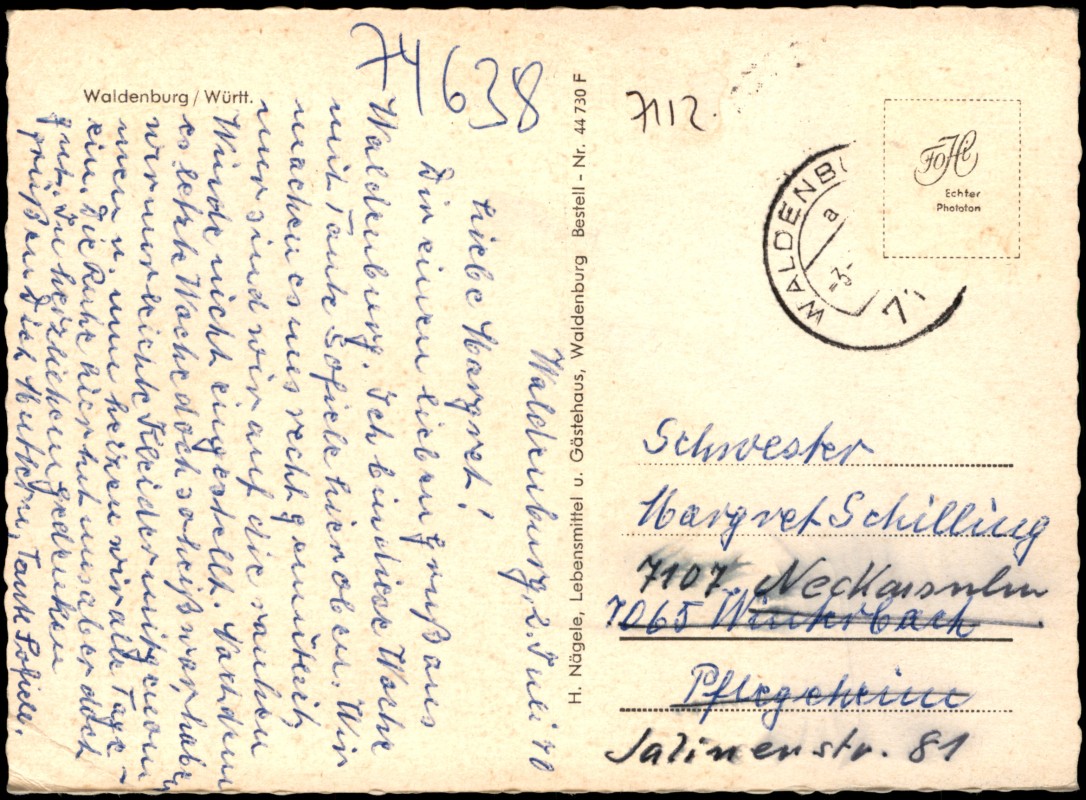 Waldenburg / Württ.
74638
Waldenburg, 2. Juli 70
Liebe Margret!
Dir einen lieben Gruß aus
Waldenburg. Ich bin diese Woche
mit Tante Sofiele hier oben. Wir
machen es uns recht gemütlich,
nur sind wir auf die rauhen
Winde nicht eingestellt. Nachdem
es letzte Woche doch so heiß war, haben
wir nur leichte Kleider mitgenom
men u. nun heizen wir alle Tage
ein. Die Ruhe hier tut uns aber doch
gut. In herzlichem Gedenken
grüßen Dich Mutschn, Tante Sofiele.
H. Nägele, Lebensmittel u. Gästehaus, Waldenburg Bestell-Nr. 44 730 F
7112.
WALDENB
a
-3-
71
FoHi
Echter
Phototon
Schwester
Margret Schilling
7107 Neckarsulm
7065 Winterbach
Pflegeheim
Salinenstr. 81